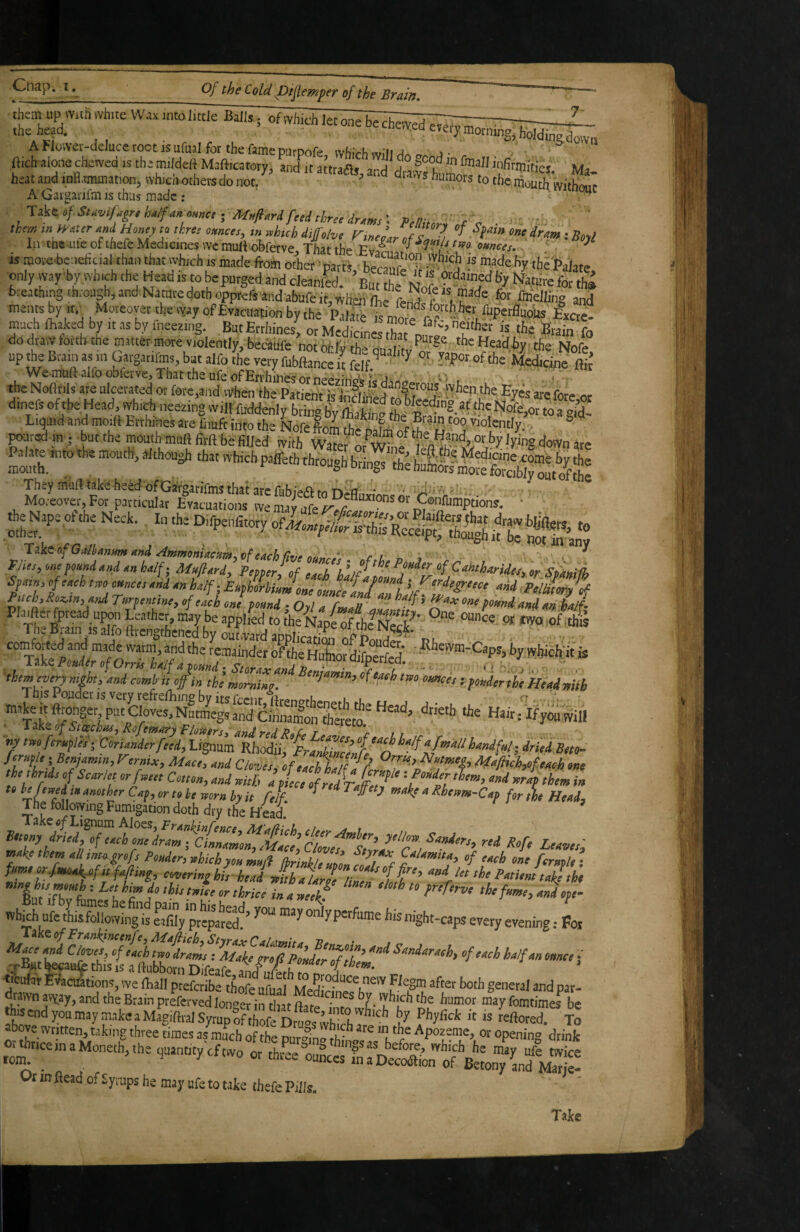 Chap. 1. Of the Cold Distemper of the Brain. 7
them up with white Wax into little Balls; of which let one be chewed every morning, holding down
the head.
A Flower-deluce root is usual for the same purpose, which will do good in small infirmities. Ma-
stich alone chewed is the mildest Masticatory, and it attracts, and draws humors to the mouth without
heat and inflammation, which others do not.
A Gargarism is thus made:
Take of Stavisagre half an ounce; Mustard seed three drams; Pellitory of Spain one dram: Boyl
them in Water and Honey to three ounces, in which dissolve Vinegar of Squils two ounces.
In the use of these Medicines we must observe, That the Evacuation which is made by the Palate,
is more beneficial than that which is made from other parts, because it is ordained by Nature for the
only way by which the Head is to be purged and cleansed. But the Nose is made for smelling and
breathing through, and Nature doth oppress and abuse it, when she sends forth her superfluous Excre-
ments by it. Moreover the way of Evacuation by the Palate is more safe, neither is the Brain so
much shaked by it as by sneezing. But Errhines, or Medicines that purge the Head by the Nose,
do draw forth the matter more violently, because not only the quality or vapor of the Medicine stir
up the Brain as in Gargarisms, but also the very substance it self.
We must also observe, That the use of Errhines or neezings is dangerous when the Eyes are sore, or
the Nostrils are ulcerated or sore, and when the Patient is inclined to bleeding at the Nose, or to a gid-
diness of the Head, which neezing will suddenly bring by shaking the Brain too violently.
Liquid and moist Errhines are snuft into the Nose from the palm of the Hand, or by lying down are
poured in; but the mouth must first be filled with Water or Wine, lest the Medicine come by the
Palate into the mouth, although that which passeth through brings the humors more forcibly out of the
mouth.
They must take heed of Gargarisms that are subject to Defluxions or Consumptions.
Moreover, For particular Evacuations we may use Vesicatories, or Plaisters that draw blisters, to
the Nape of the Neck. In the Dispensitory of Montpelior is this Receipt, though it be not in any
other.
Take of Galbanum and Ammoniacum, of each five ounces; of the Pouder of Cantharides, or Spanish
Flies, one pound and an half; Mustard, Pepper, of each half a pound; Verdegreece and Pellitory of
Spain, of each two ounces and an half; Euphorbium one ounce and an half; Wax one pound and an half;
Pitch, Rozin, and Turpentine, of each one pound; Oyl a small quantity. One ounce or two of this
Plaister spread upon Leather, may be applied to the Nape of the Neck.
The Brain is also strengthened by outward application of Pouder. Rhewm-Caps, by which it is
comforted and made warm, and the remainder of the Humor dispersed.
Take Pouder of Orris half a pound; Storax and Benjamin, of each two ounces: pouder the Head with
them every night, and comb it off in the morning.
This Pouder is very refreshing by its scent, strengtheneth the Head, drieth the Hair: If you will
make it stronger, put Cloves, Nutmegs and Cinnamon thereto.
Take of Stœchas, Rosemary Flowers, and red Rose Leaves, of each half a small handful; dried Beto-
ny two scruples; Coriander seed, Lignum Rhodii, Frankincense, Orris, Nutmeg, Mastich, of each one
scruple; Benjamin, Vernix, Mace, and Cloves, of each half a scruple: Pouder them, and wrap them in
the thrids of Scarlet or sweet Cotton, and with a piece of red Taffety make a Rhewm-Cap for the Head,
to be sewed in another Cap, or to be worn by it self.
The following Fumigation doth dry the Head.
Take of Lignum Aloes, Frankinsence, Mastich, cleer Amber, yellow Sanders, red Rose Leaves,
Betony dried, of each one dram; Cinnamon, Mace, Cloves, Styrax Calamita, of each one scruple:
make them all into gross Pouder, which you must sprinkle upon coals of fire, and let the Patient take the
fume or smoak of it fasting, covering his head with a large linen cloth to preserve the fume, and ope-
ning his mouth: Let him do this twice or thrice in a week.
But if by fumes he find pain in his head, you may only perfume his night-caps every evening: For
which use this following is easily prepared.
Take of Frankincense, Mastich, Styrax Calamita, Benzoin, and Sandarach, of each half an ounce;
Mace and Cloves, of each two drams: Make gross Pouder of them.
But because this is a stubborn Disease, and useth to produce new Flegm after both general and par-
ticular Evacuations, we shall prescribe those usual Medicines by which the humor may somtimes be
drawn away, and the Brain preserved longer in that state, into which by Physick it is restored. To
this end you may make a Magistral Syrup of those Drugs which are in the Apozeme, or opening drink
above written, taking three times as much of the purging things as before, which he may use twice
or thrice in a Moneth, the quantity of two or three ounces in a Decoction of Betony and Marje-
rom.
Or instead of Syrups he may use to take these Pills.
Take